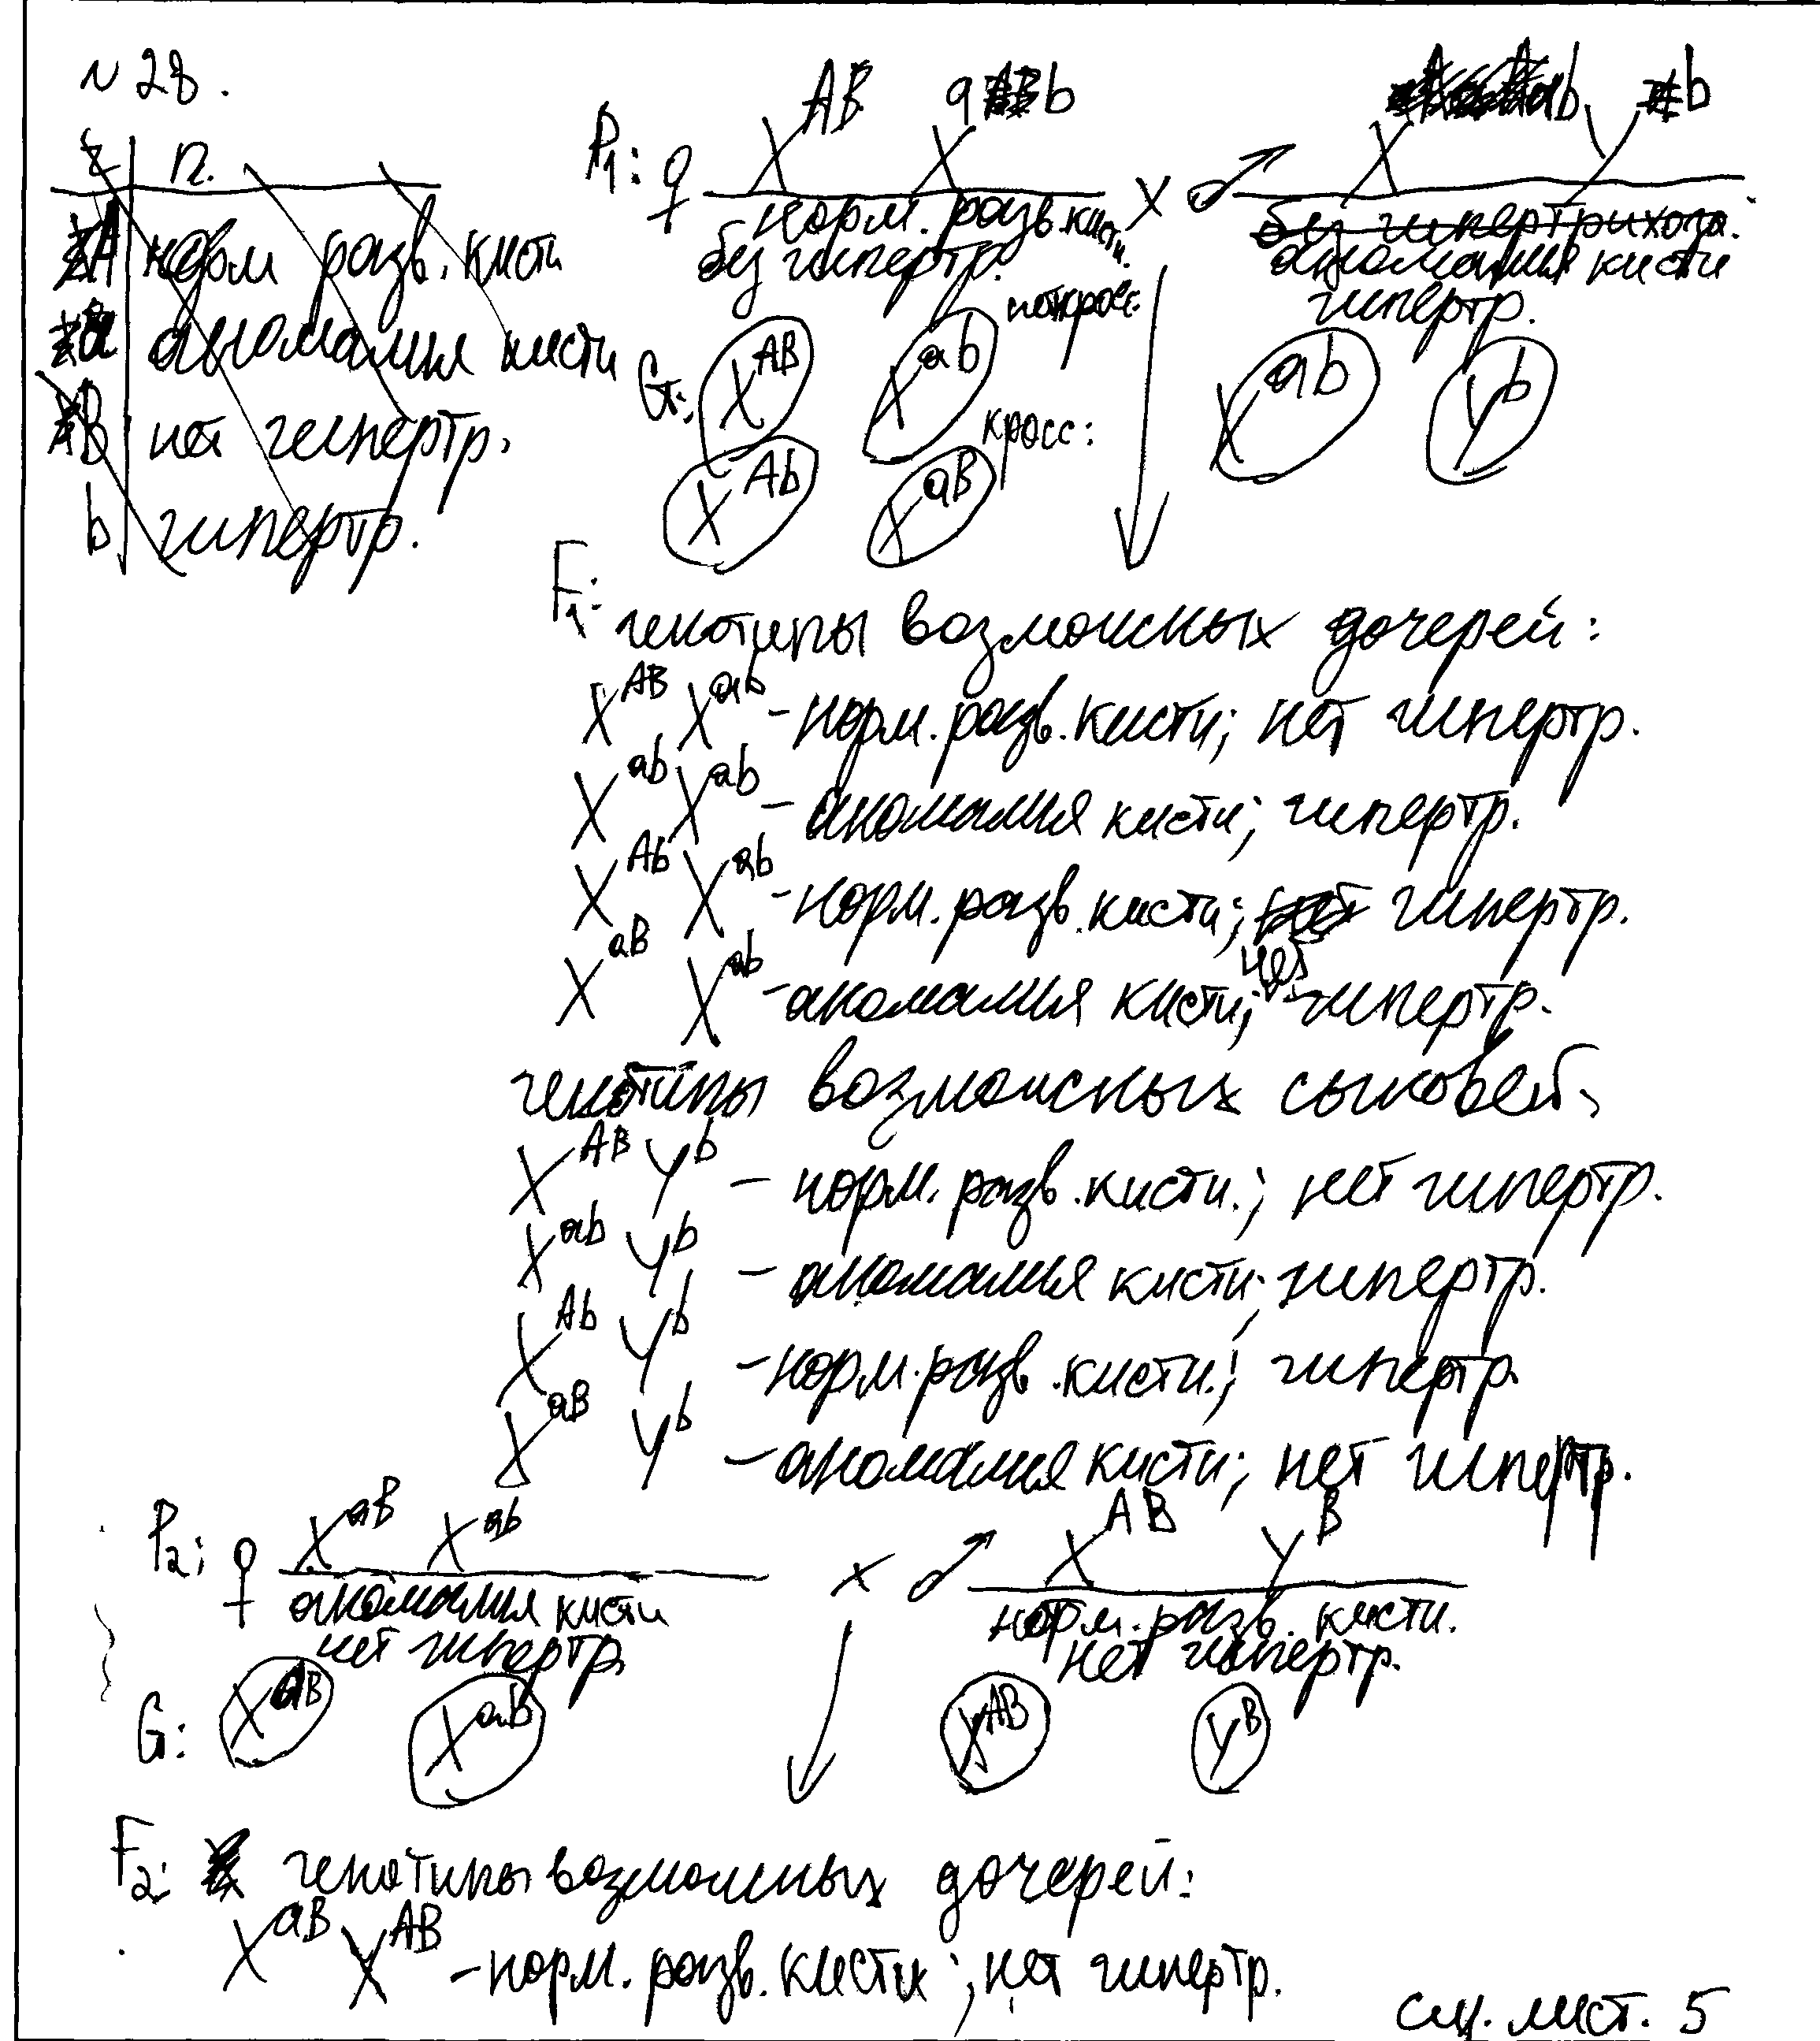 №28.
г | п.
A | норм разв. кисти
a | аномалия кисти
B | нет гипертр.
b | гипертр.
P1: ♀ X^AB X^ab × ♂ X^ab Y^b
норм. разв. кисти. без гипертр.
без гипертрихоза. аномалия кисти гипертр.
G: X^AB X^ab X^ab Y^b
кросс: X^Ab X^aB
F1: генотипы возможных дочерей:
X^AB X^ab - норм. разв. кисти; нет гипертр.
X^ab X^ab - аномалия кисти; гипертр.
X^Ab X^ab - норм. разв. кисти; гипертр.
X^aB X^ab - аномалия кисти; нет гипертр.
генотипы возможных сыновей:
X^AB Y^b - норм. разв. кисти.; нет гипертр.
X^ab Y^b - аномалия кисти; гипертр.
X^Ab Y^b - норм. разв. кисти.; гипертр.
X^aB Y^b - аномалия кисти; нет гипертр.
P2: ♀ X^aB X^ab × ♂ X^AB Y^B
аномалия кисти нет гипертр.
норм. разв. кисти. нет гипертр.
G: X^aB X^ab X^AB Y^B
F2: генотипы возможных дочерей:
X^aB X^AB - норм. разв. кисти; нет гипертр.
см. лист. 5